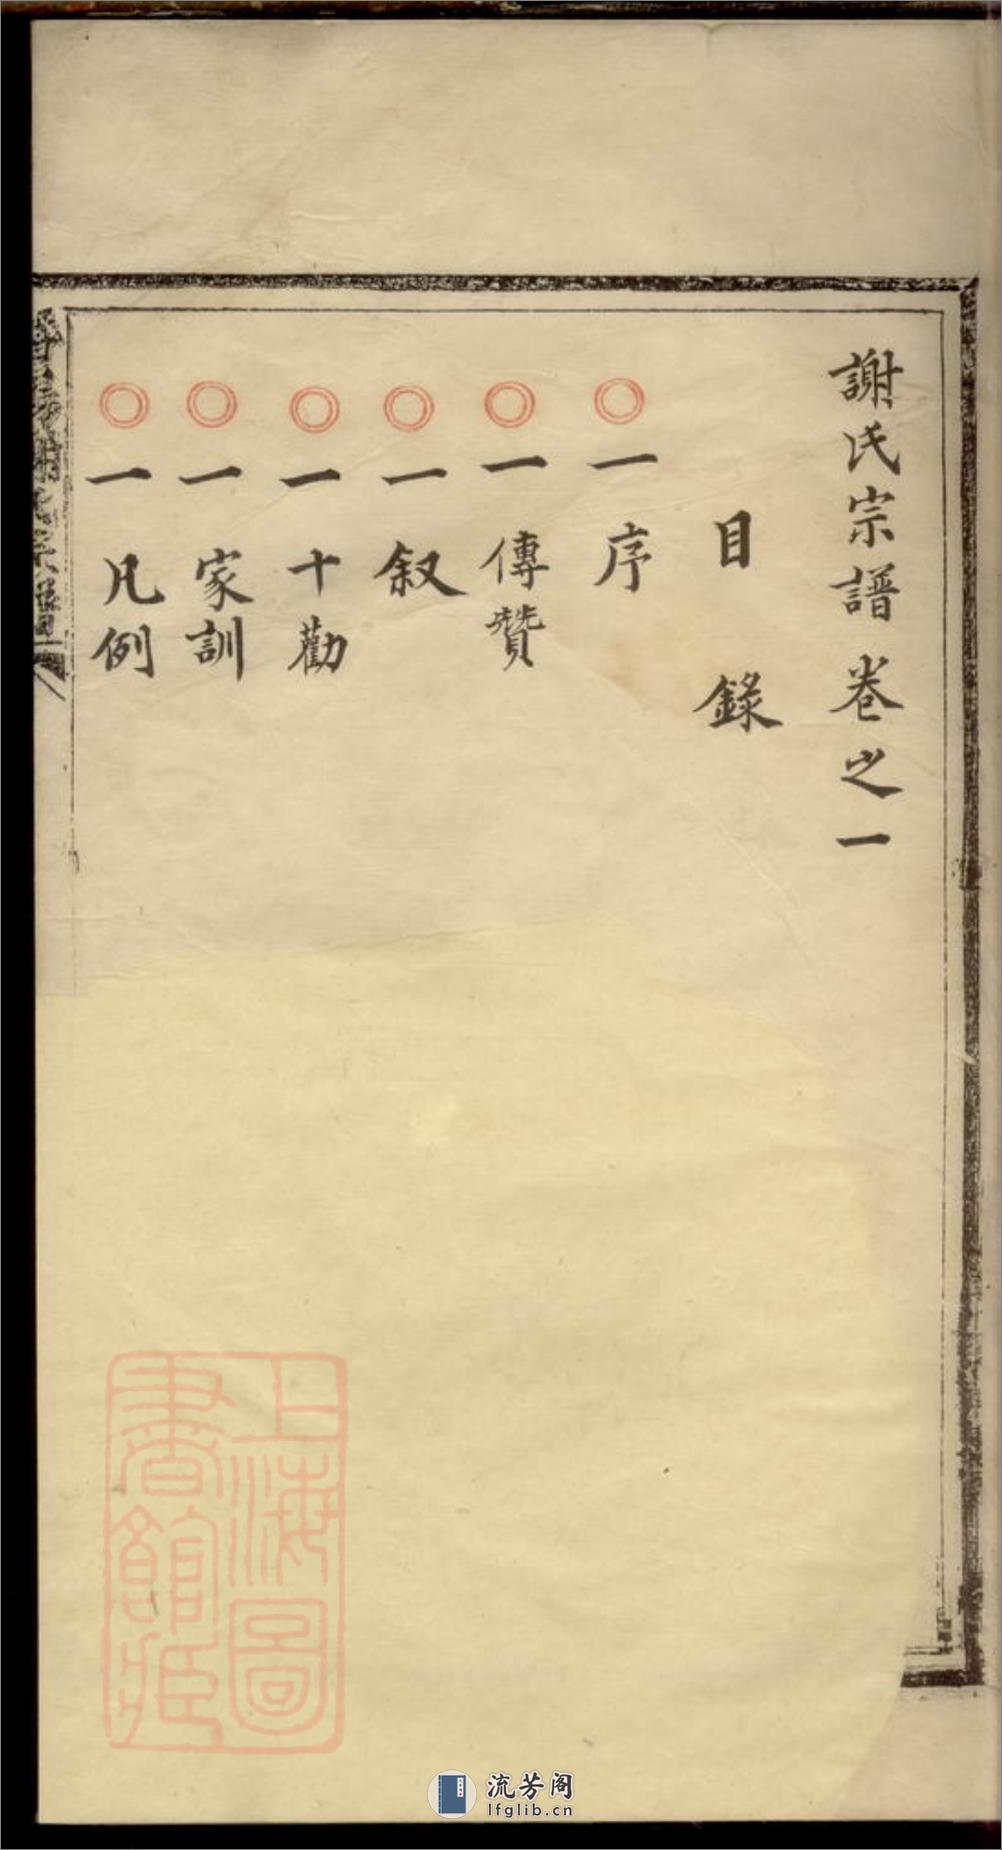 謝氏宗譜卷之一
目錄
一序
一傳贊
一叙
一十勸
一家訓
一凡例
謝氏宗譜
上海圖
書館藏
流芳阁
lfglib.cn